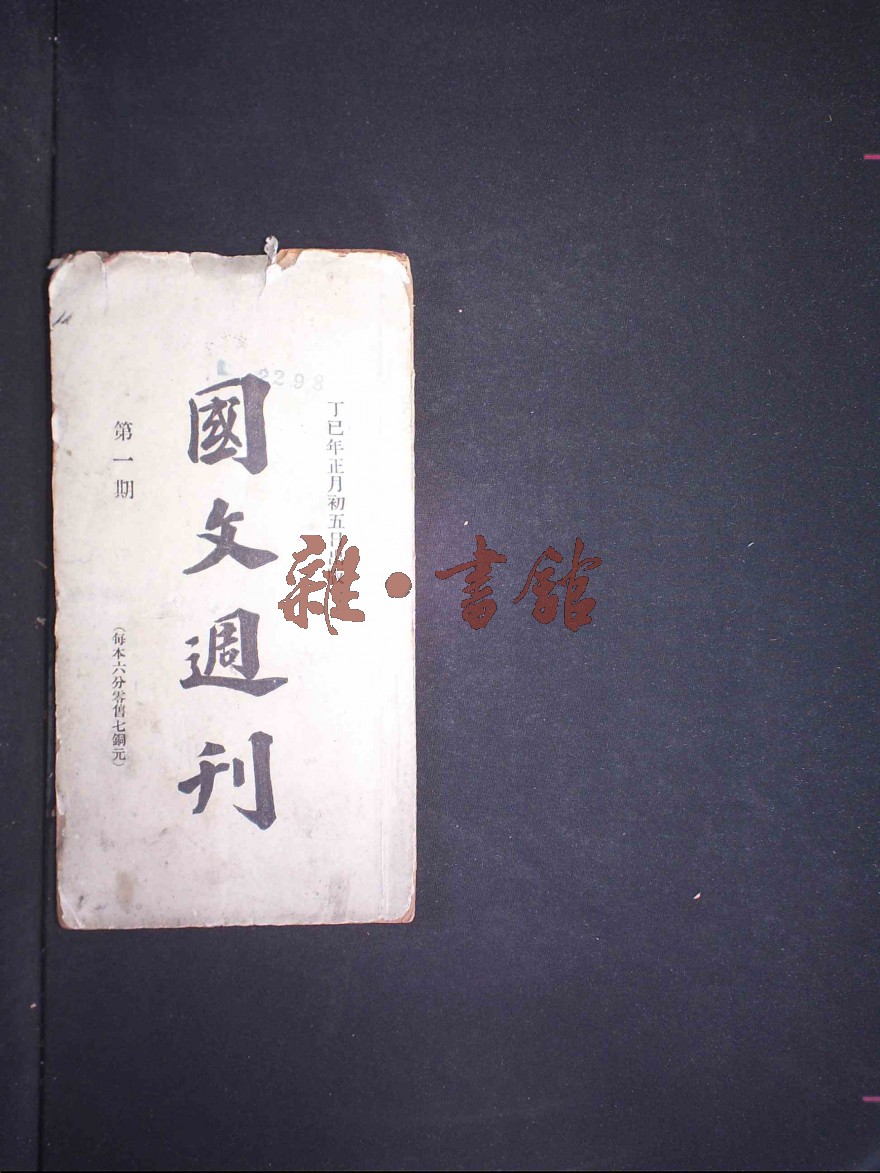 丁巳年正月初五日
國文週刊
第一期
（每本六分零售七銅元）
2298
雜·書館